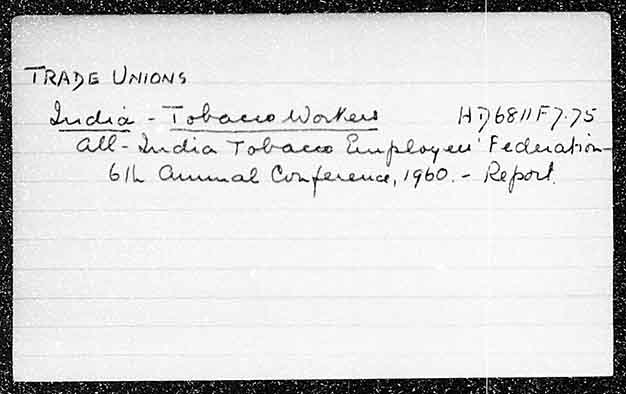 TRADE UNIONS
India - Tobacco Workers HD6811F7.75
All-India Tobacco Employees' Federation-
6th Annual Conference, 1960. - Report.